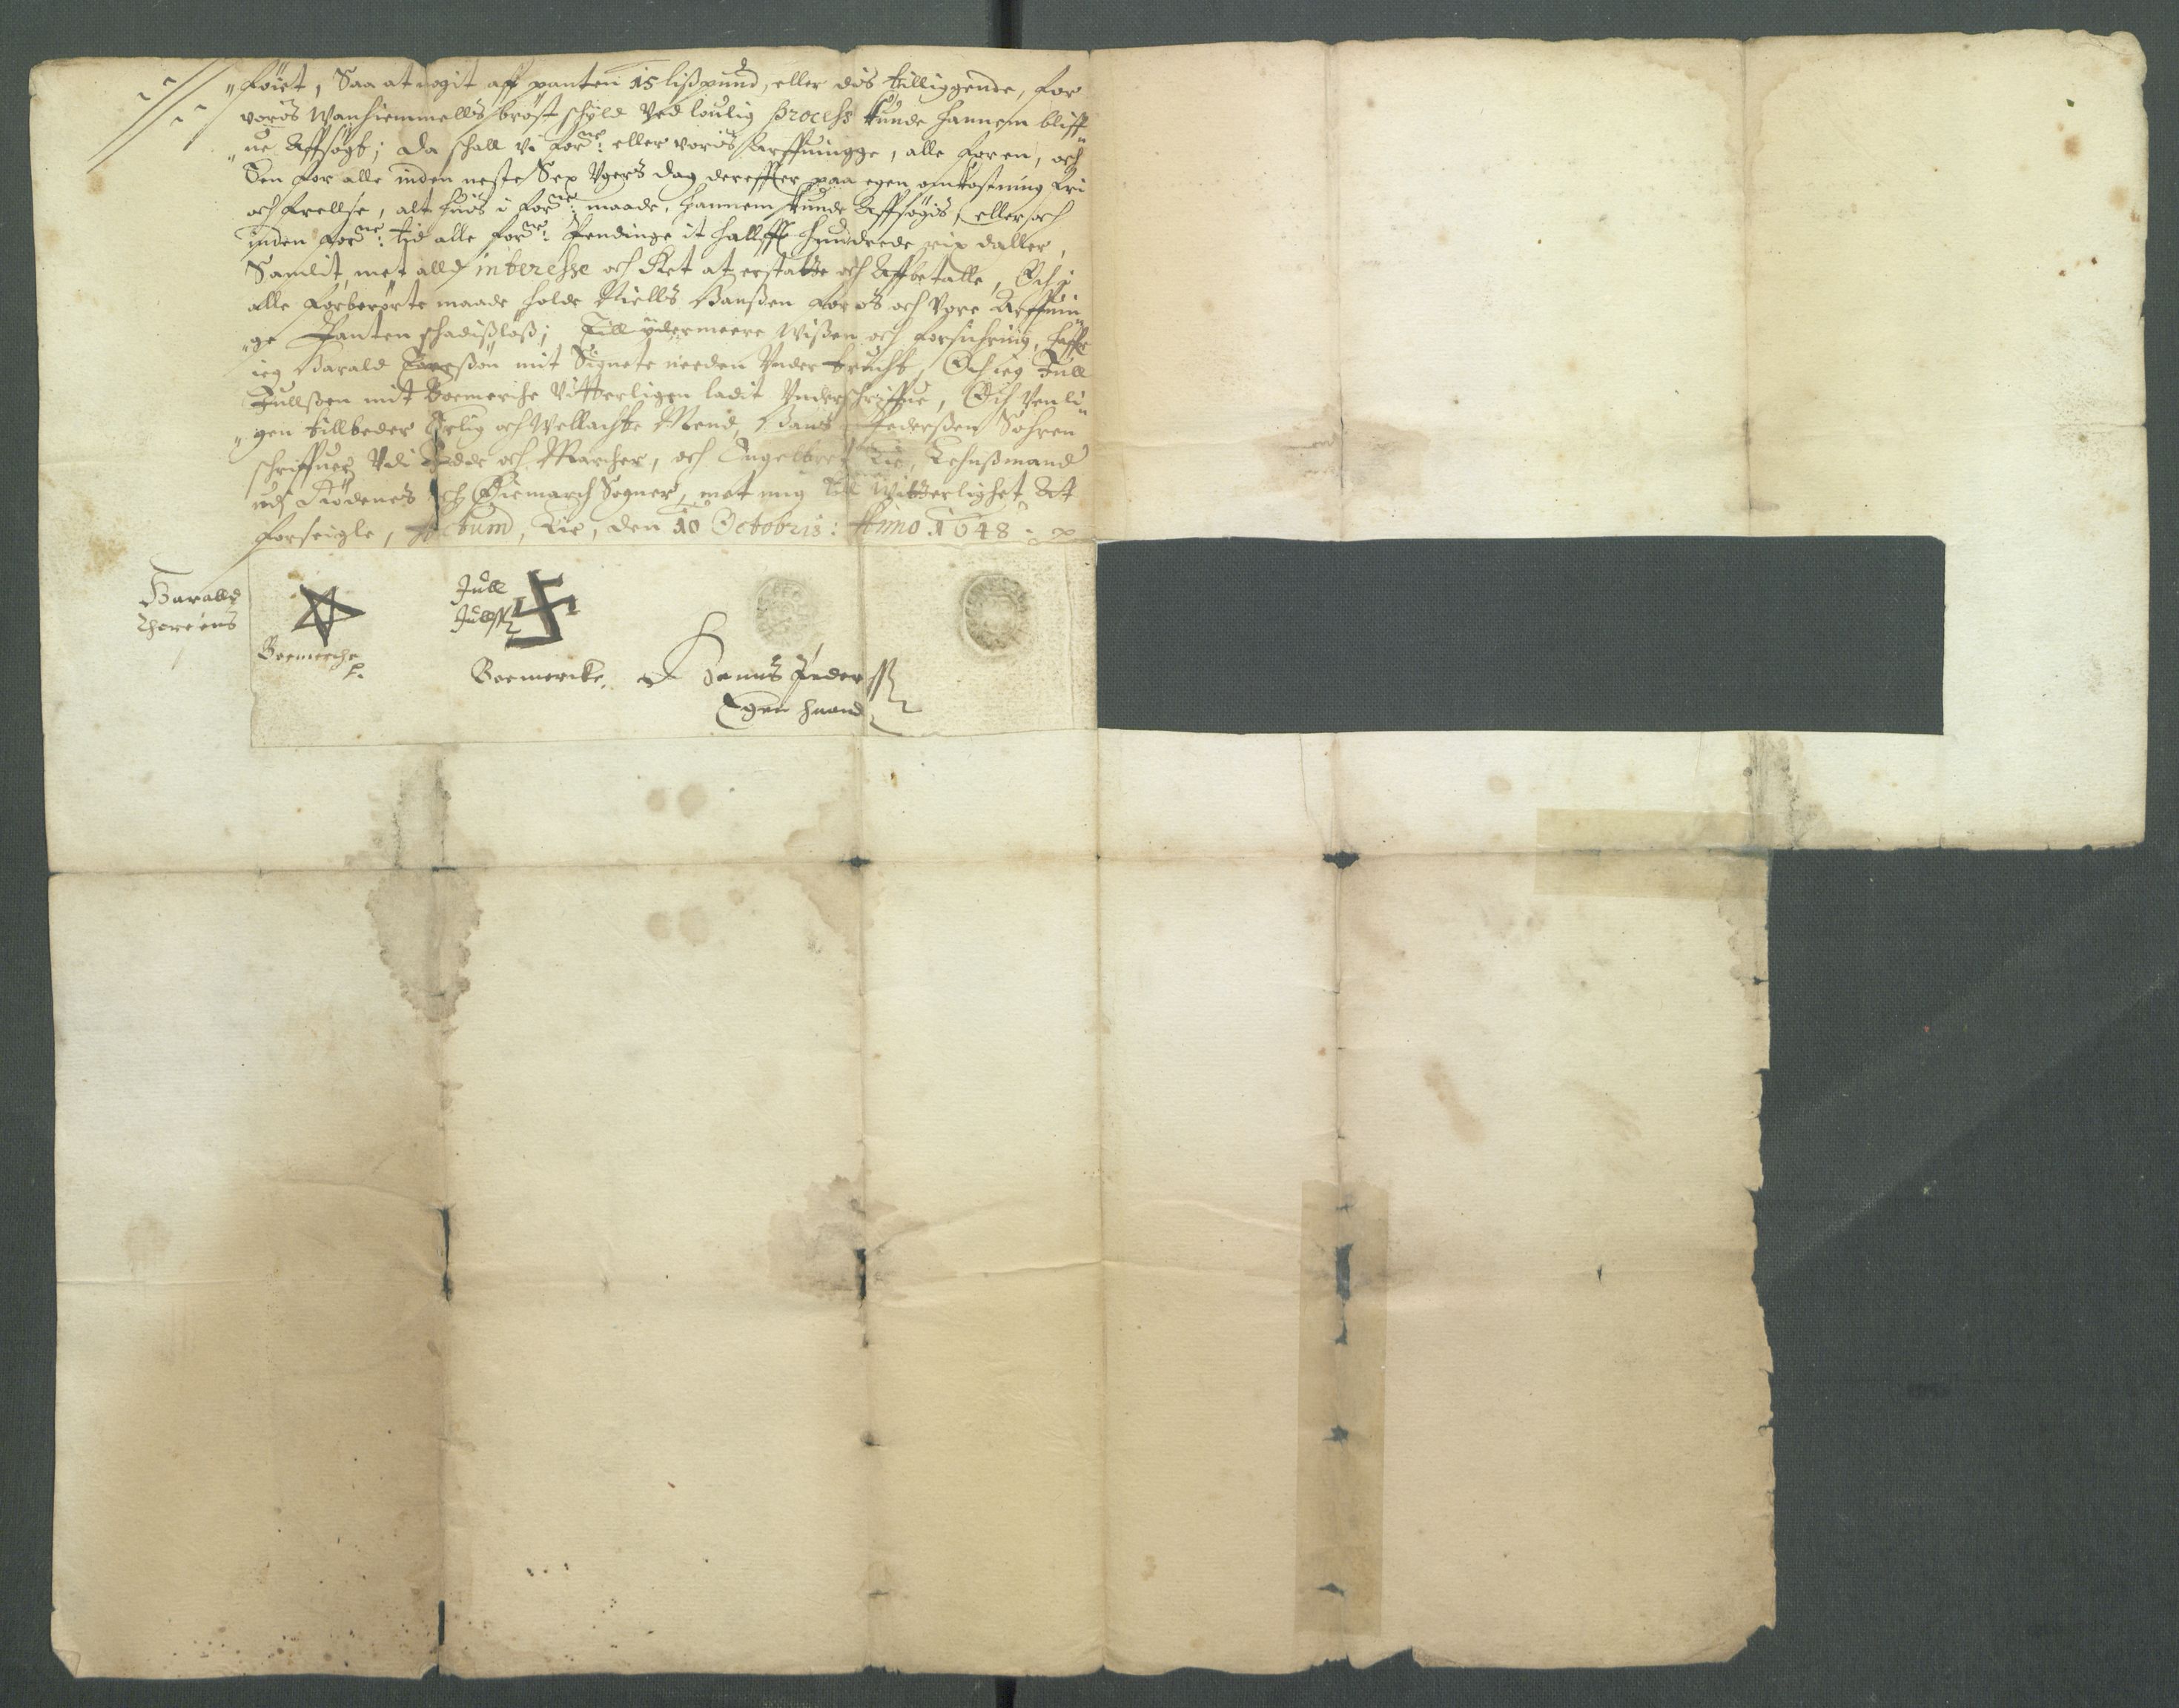 „føiet, Saa at nogit aff panten 15 lißpund, eller dis tilliggende, for
voris Wanhiemmells brøst schyld Ved loulig Process kunde hannem bliff„
„ue Affsøgt; da schall vi forne: eller voris Arffuingge, alle for en, och
Een for alle inden neste Sex Vgers dag derefter paa egen omkostning fri
och frellse, alt huis i forne: maade, hannem kunde Affsøgis, eller och
inden forne: tid alle forne: Pendinge it halfft hundrede rix daller,
Samlit, met all interesse och Ret at erstatte och Affbetalle, Och i
alle forberørte maade holde Niells Hanßen for os och Vore Arffuin„
„ge Panten schadisløß; Till ydermeere Wißen och forsichring, haffr
ieg Harald Toresøn mit Signete neden Vnder trucht, Och ieg Jull
Jullßen mit Boemerche Vitterligen ladit Vnderschriffue, Och Venli„
„gen tillbeder Erlig och Wellachte Mend, Hans Pederßen Sohren
schriffuer Vdi och Marcher, och Engelbret Lie, Lehnßmand
udj Rødenes och Øiemarch Sogner, met mig till Witterlighet At
forseigle, Actum, Lie, den 10 Octobris: Anno 1648
Haralld
Thoreens
Boemerche
Jull
Jullß
Boemercke
Hanns Peder ß
Egen haand